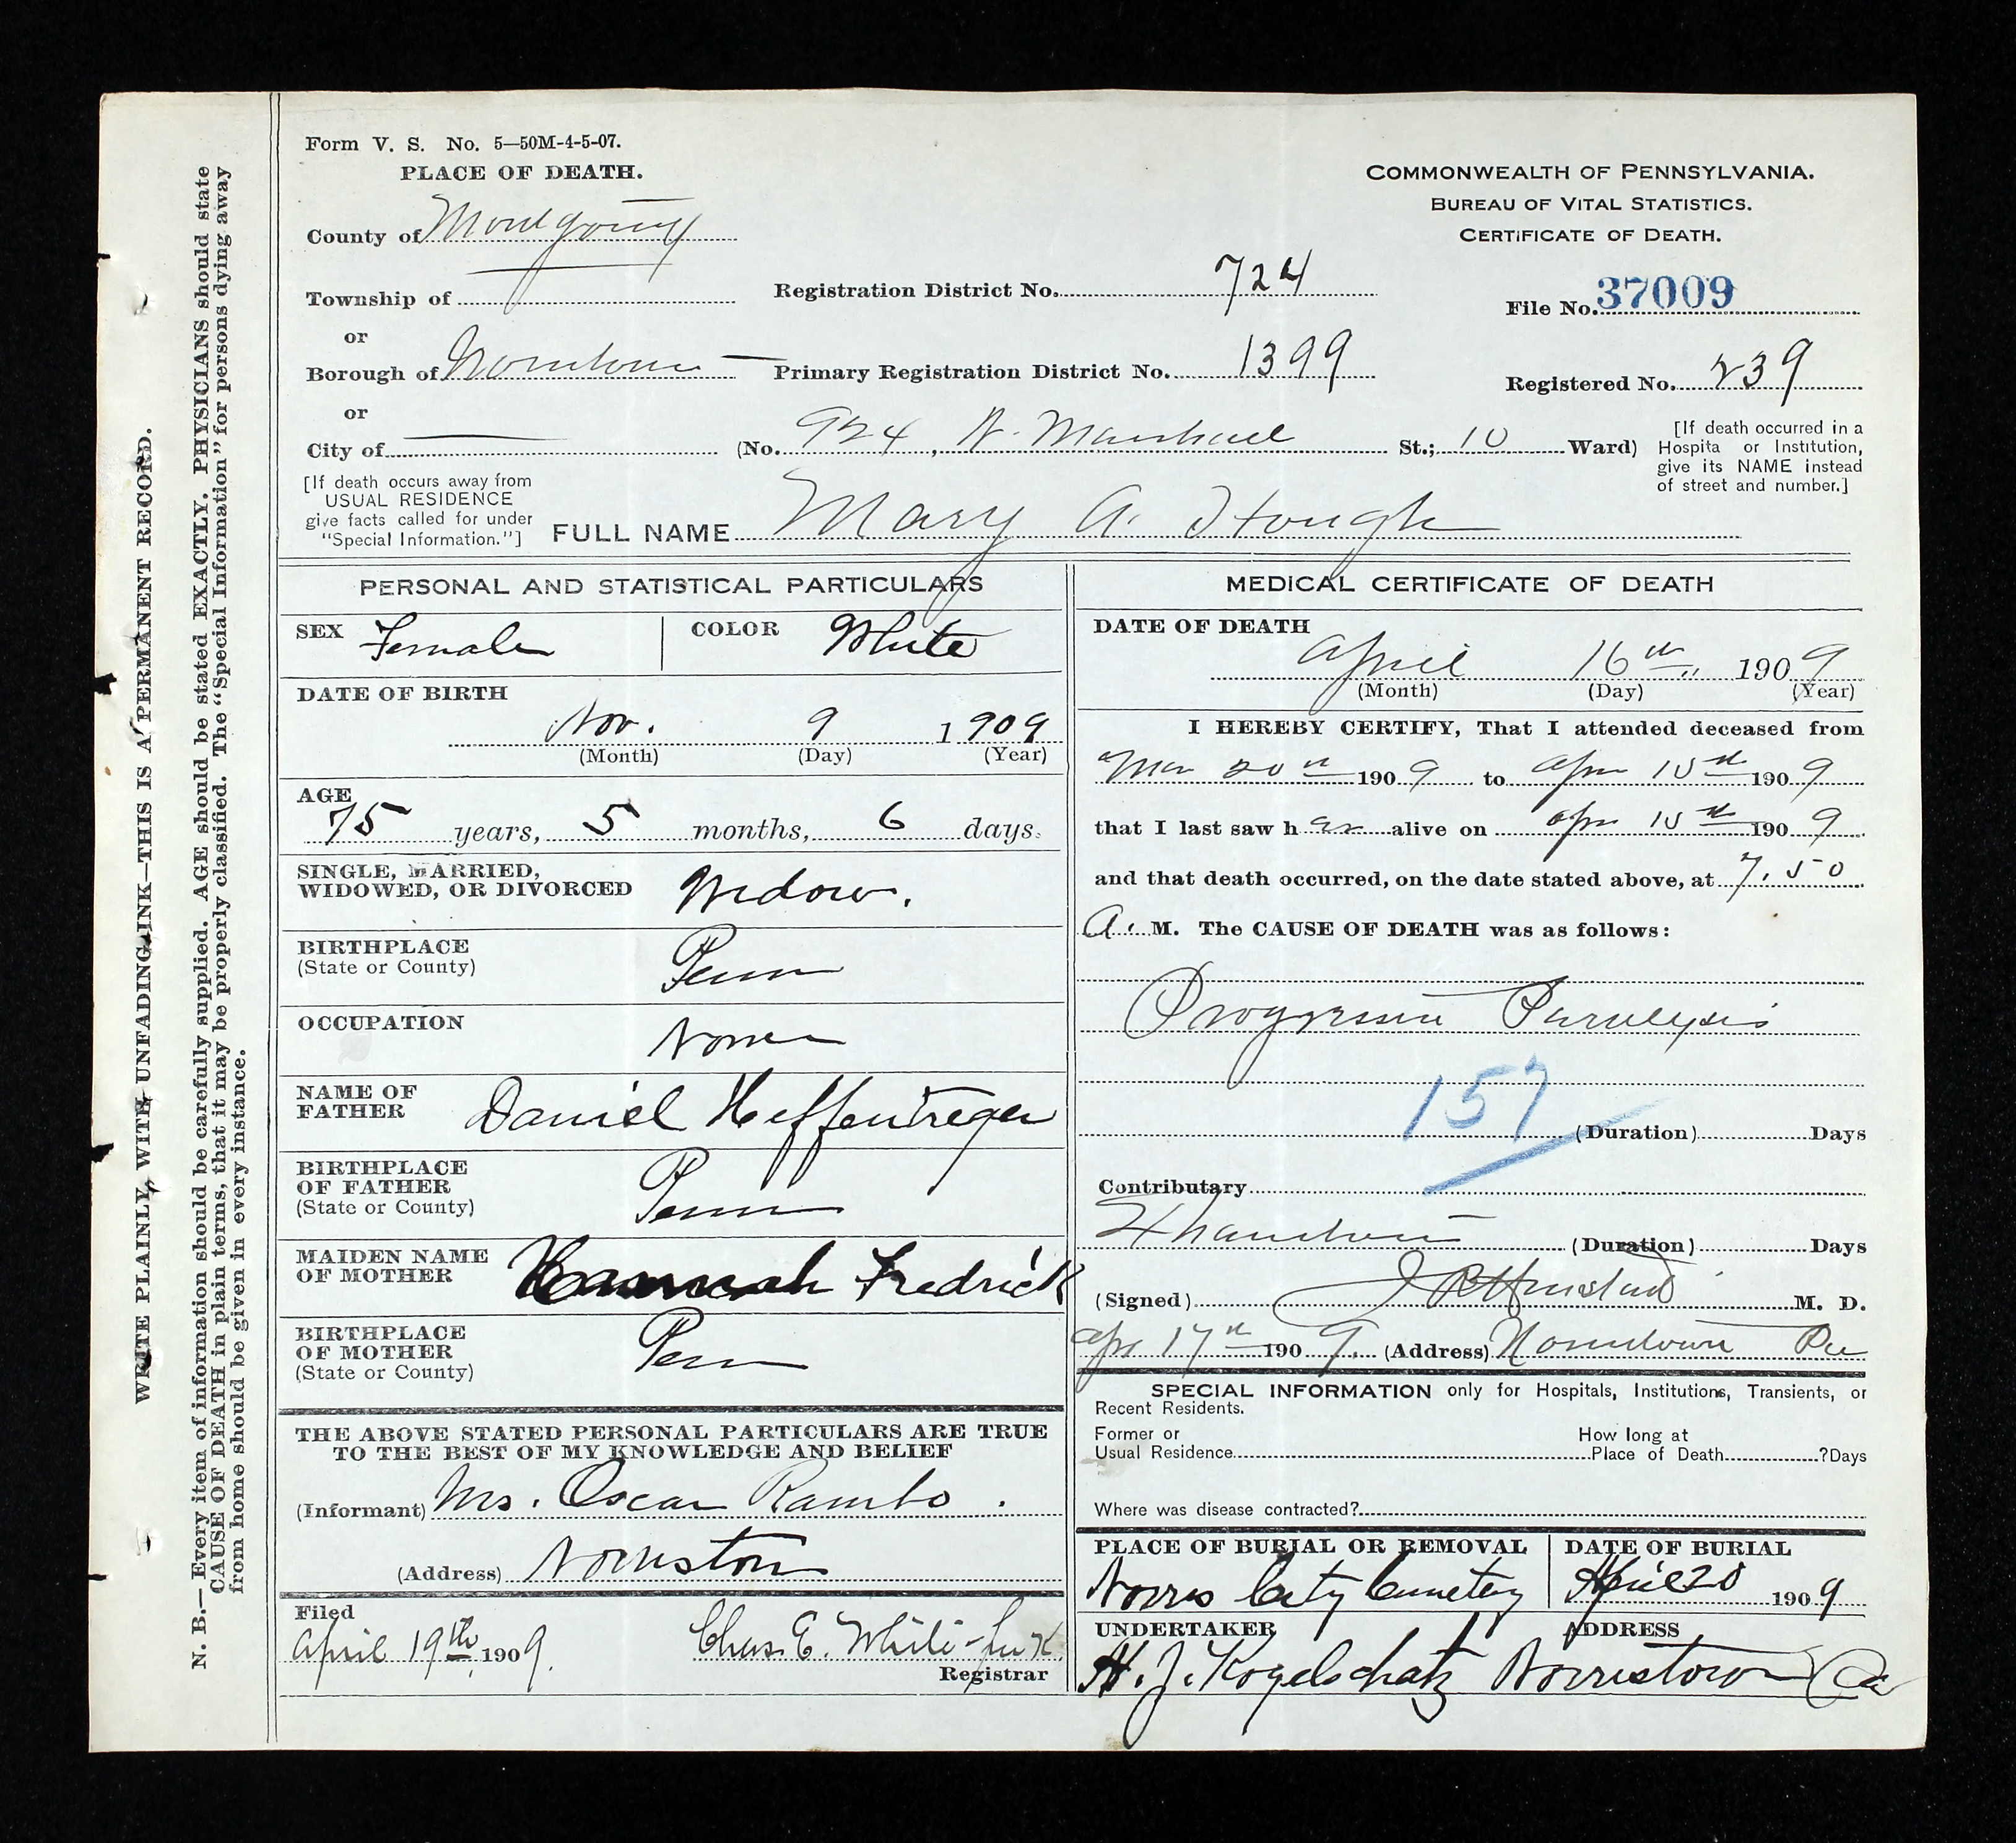 WRITE PLAINLY, WITH UNFADING INK—THIS IS A PERMANENT RECORD.
N. B.—Every item of information should be carefully supplied. AGE should be stated EXACTLY. PHYSICIANS should state
CAUSE OF DEATH in plain terms, that it may be properly classified. The "Special Information" for persons dying away
from home should be given in every instance.
Form V. S. No. 5—50M-4-5-07.
PLACE OF DEATH.
County of Montgomery
Township of
or
Borough of Norristown
or
City of
[If death occurs away from
USUAL RESIDENCE
give facts called for under
"Special Information."]
COMMONWEALTH OF PENNSYLVANIA.
BUREAU OF VITAL STATISTICS.
CERTIFICATE OF DEATH.
Registration District No. 724
File No. 37009
Primary Registration District No. 1399
Registered No. 239
(No. 924, W. Marshall St.; 10 Ward)
[If death occurred in a
Hospita or Institution,
give its NAME instead
of street and number.]
FULL NAME Mary A. Hough
PERSONAL AND STATISTICAL PARTICULARS
SEX Female COLOR White
DATE OF BIRTH
Nov. 9 1909
(Month) (Day) (Year)
AGE
75 years, 5 months, 6 days.
SINGLE, MARRIED,
WIDOWED, OR DIVORCED Widow.
BIRTHPLACE
(State or County) Penn
OCCUPATION None
NAME OF
FATHER Daniel Heffentreger
BIRTHPLACE
OF FATHER
(State or County) Penn
MAIDEN NAME
OF MOTHER Hannah Fredrick
BIRTHPLACE
OF MOTHER
(State or County) Penn
THE ABOVE STATED PERSONAL PARTICULARS ARE TRUE
TO THE BEST OF MY KNOWLEDGE AND BELIEF
(Informant) Mrs. Oscar Rambo.
(Address) Norristown
Filed
April 19th, 1909. Chas. E. White
Registrar
MEDICAL CERTIFICATE OF DEATH
DATE OF DEATH
April 16th 1909
(Month) (Day) (Year)
I HEREBY CERTIFY, That I attended deceased from
Mar 20th 1909 to Apr 15th 1909
that I last saw her alive on Apr 15th 1909
and that death occurred, on the date stated above, at 7.50
A. M. The CAUSE OF DEATH was as follows:
Progressive Paralysis
157
(Duration) Days
Contributary
Exhaustion (Duration) Days
(Signed) M. D.
Apr 17th 1909. (Address) Norristown Pa
SPECIAL INFORMATION only for Hospitals, Institutions, Transients, or
Recent Residents.
Former or
Usual Residence
How long at
Place of Death ?Days
Where was disease contracted?
PLACE OF BURIAL OR REMOVAL
Norris City Cemetery
DATE OF BURIAL
April 20 1909
UNDERTAKER
H. J. Kogelschatz
ADDRESS
Norristown Pa